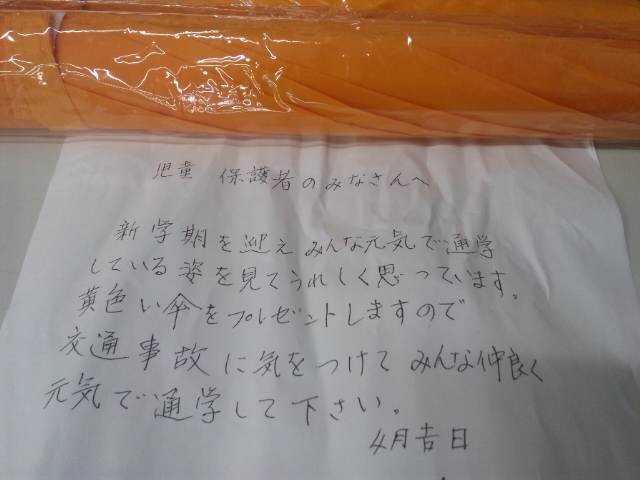 児童 保護者のみなさんへ
新学期を迎えみんな元気で通学
している姿を見てうれしく思っています。
黄色い傘をプレゼントしますので
交通事故に気をつけてみんな仲良く
元気で通学して下さい。
4月吉日